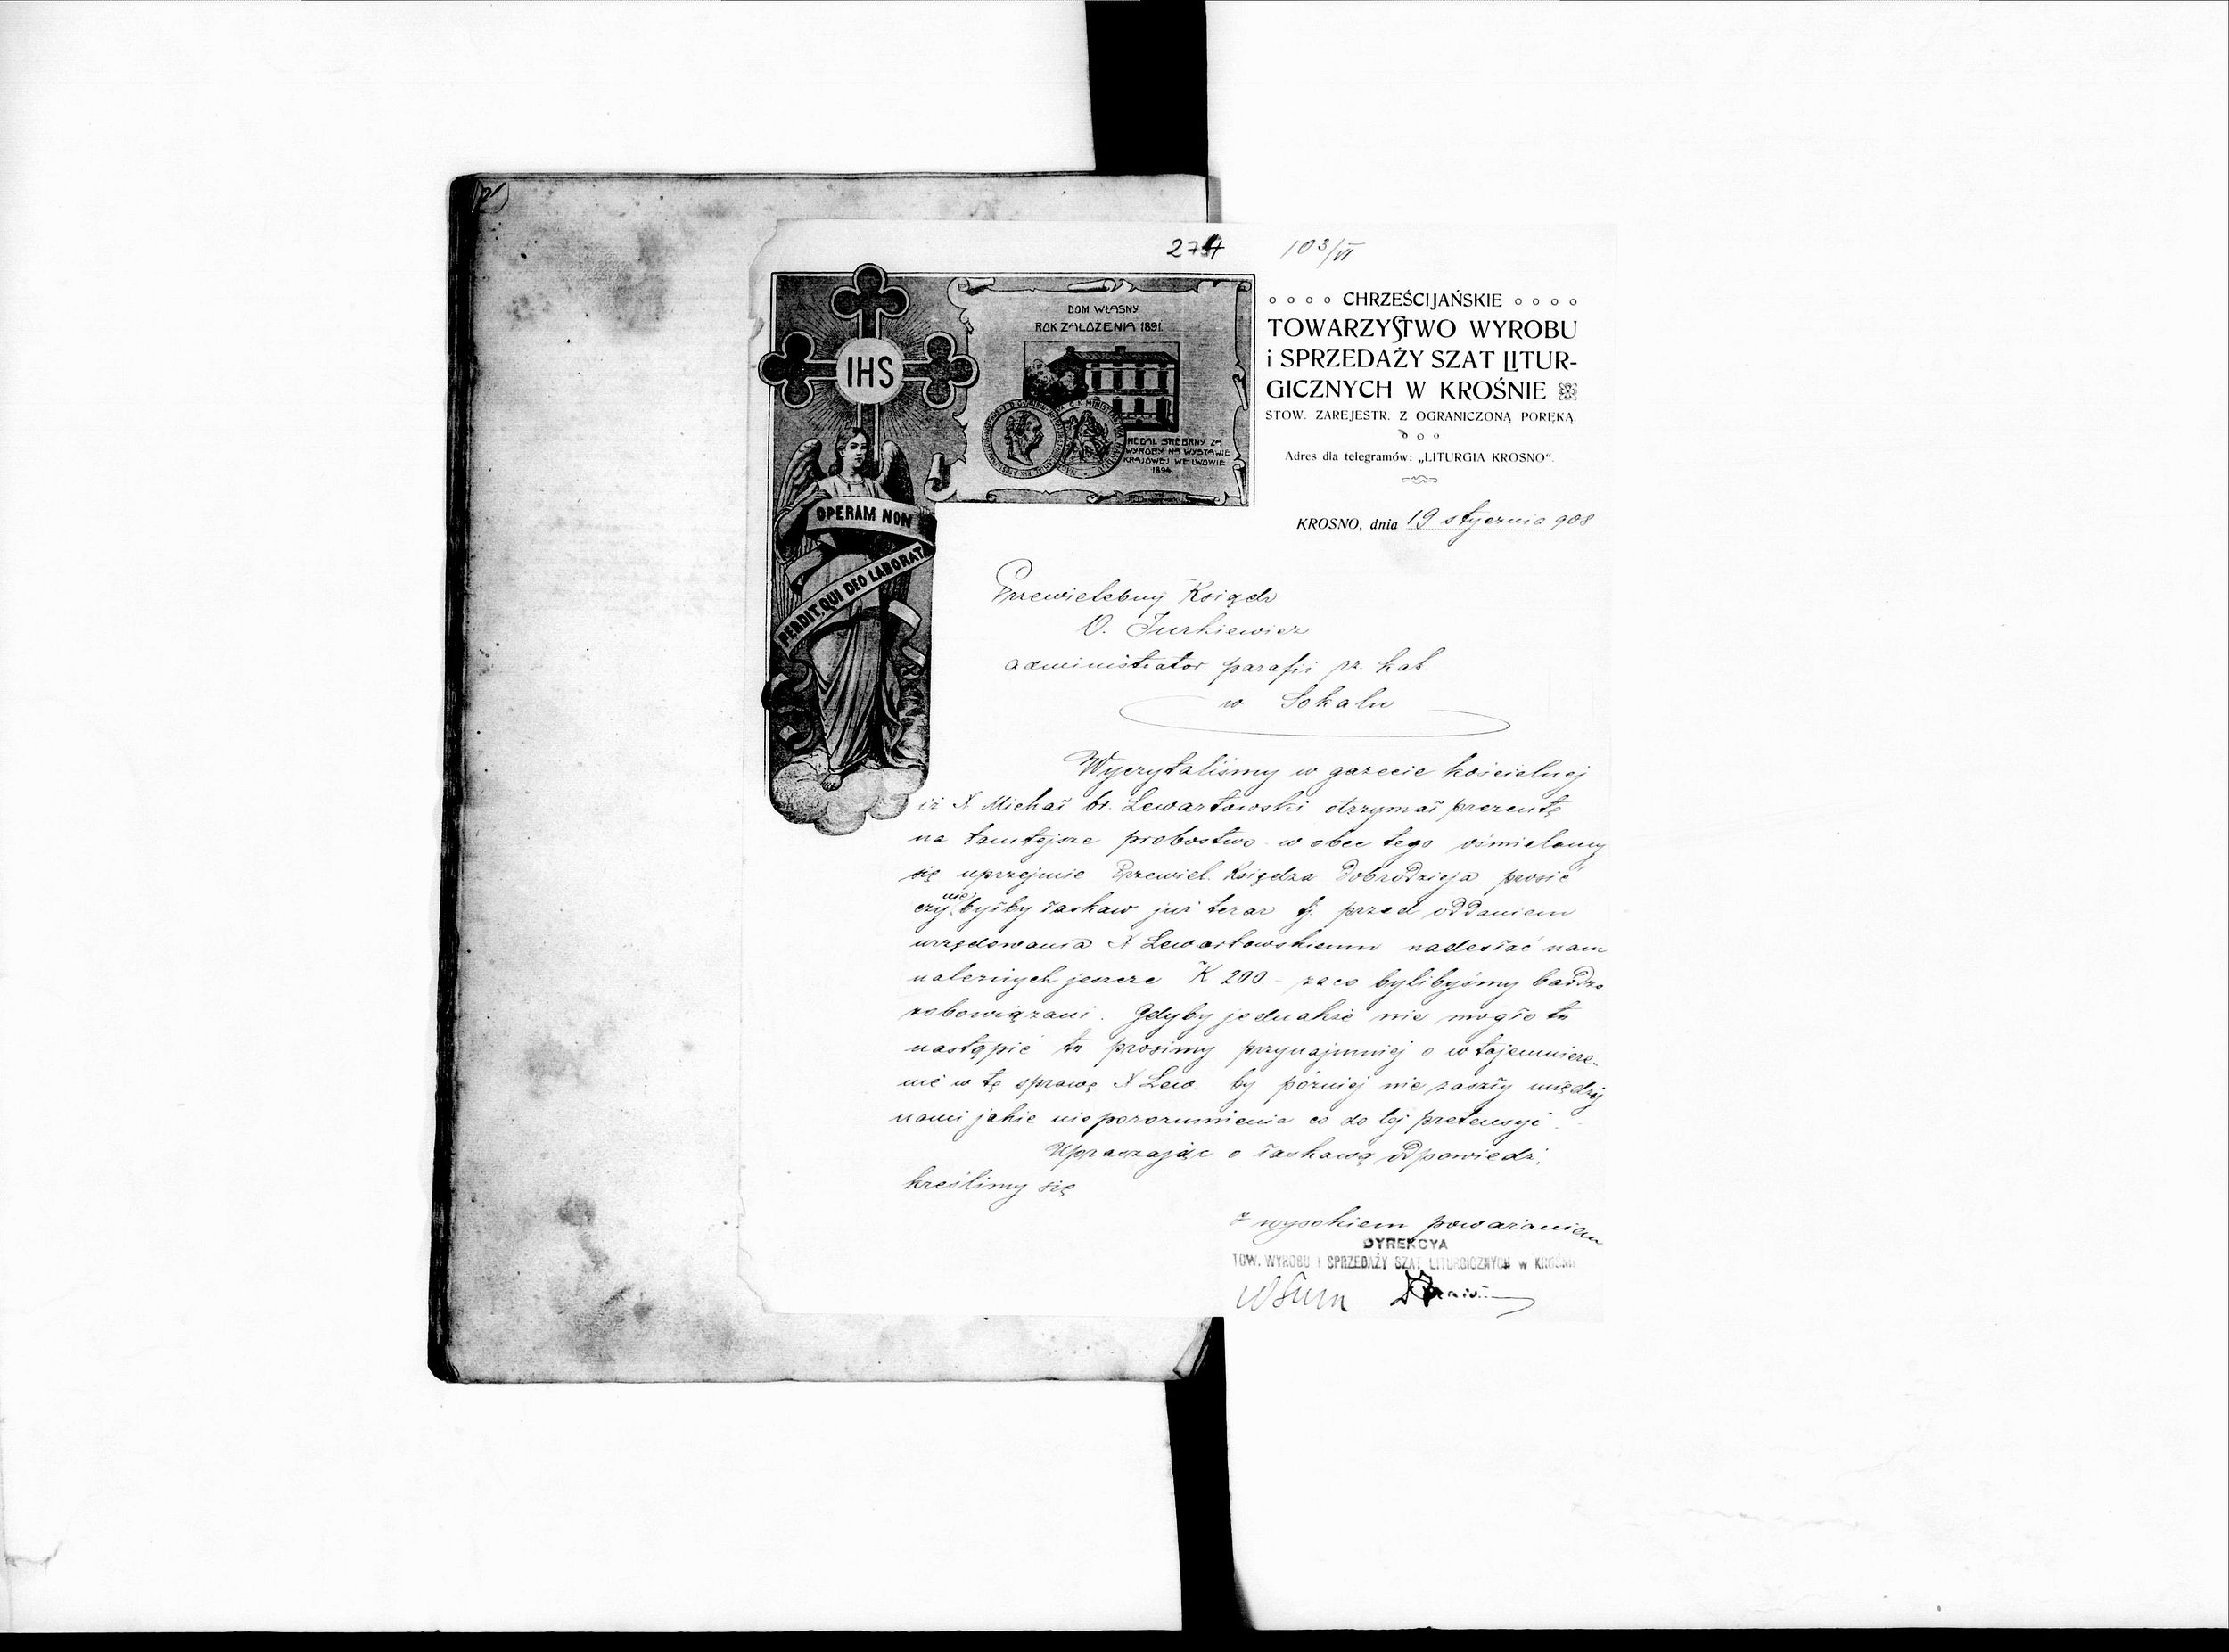 274 103/VI
DOM WŁASNY
ROK ZAŁOŻENIA 1891.
IHS
MEDAL SREBRNY ZA
WYROBY NA WYSTAWIE
KRAJOWEJ WE LWOWIE
1894.
OPERAM NON
PERDIT, QUI DEO LABORAT.
CHRZEŚCIJAŃSKIE
TOWARZYSTWO WYROBU
i SPRZEDAŻY SZAT LITUR-
GICZNYCH W KROŚNIE
STOW. ZAREJESTR. Z OGRANICZONĄ PORĘKĄ.
Adres dla telegramów: „LITURGIA KROSNO".
KROSNO, dnia 19 stycznia 908
Przewielebny Ksiądz
O. Jurkiewicz
administrator parafii rz. kat.
w Sokalu
Wyczytaliśmy w gazecie kościelnej
iż X Michał br. Lewartowski otrzymał prezentę
na tamtejsze probostwo w obec tego ośmielamy
się uprzejmie Przewiel. Księdza Dobrodzieja prosić
czy nie byłby łaskaw już teraz tj. przed oddaniem
urzędowania X Lewartowskiemu nadesłać nam
należnych jeszcze K 200 – za co bylibyśmy bardzo
zobowiązani. Gdyby jednakże nie mogło to
nastąpić to prosimy przynajmniej o wtajemnicze-
nie w tę sprawę X Lew. by później nie zaszły między
nami jakie nieporozumienia co do tej pretensyi.
Upraszając o łaskawą odpowiedź,
kreślimy się
z wysokiem poważaniem
DYREKCYA
TOW. WYROBU I SPRZEDAŻY SZAT LITURGICZNYCH w KROŚNIE